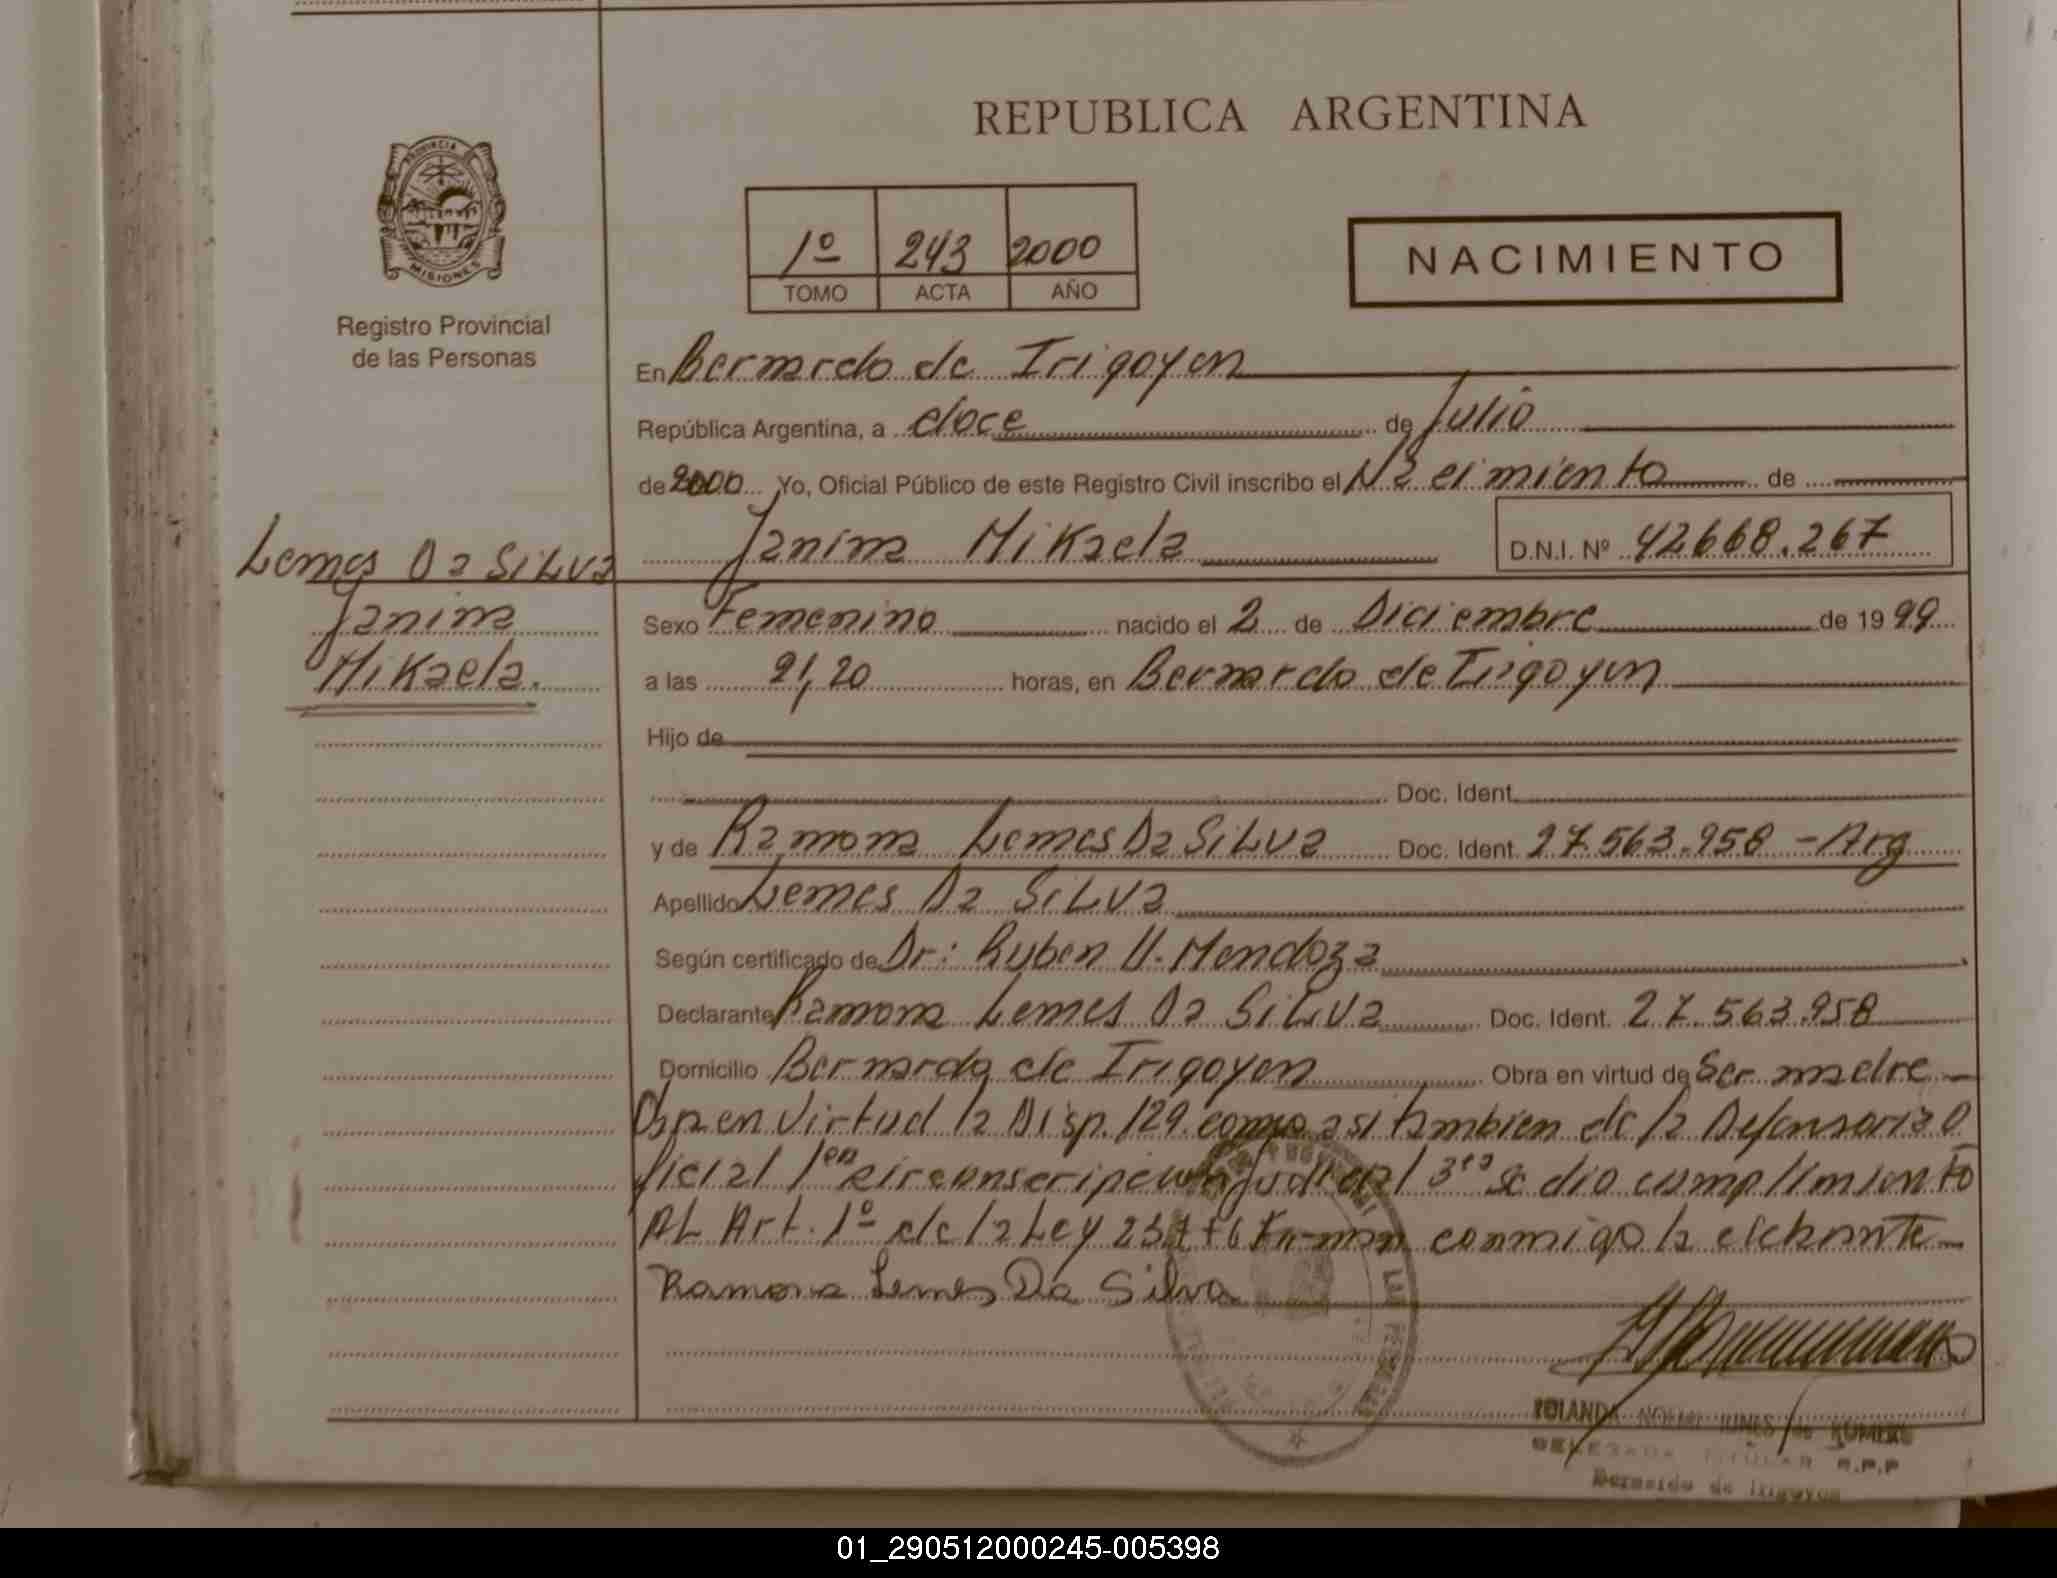 REPUBLICA ARGENTINA
PROVINCIA DE
MISIONES
Registro Provincial
de las Personas
1º 243 2000
TOMO ACTA AÑO
NACIMIENTO
En Bernardo de Irigoyen
República Argentina, a doce de Julio
de 2000 Yo, Oficial Público de este Registro Civil inscribo el Nacimiento de
Janina Mikaela D.N.I. Nº 42668.267
Lemes Da SiLva
Janina
Mikaela.
Sexo Femenino nacido el 2 de Diciembre de 1999
a las 21,20 horas, en Bernardo de Irigoyen
Hijo de
Doc. Ident.
y de Ramona Lemes Da SiLva Doc. Ident. 27.563.958 - Arg
Apellido Lemes Da SiLva
Según certificado de Dr: Ruben U. Mendoza
Declarante Ramona Lemes Da SiLva Doc. Ident. 27.563.958
Domicilio Bernardo de Irigoyen Obra en virtud de Ser madre
en virtud la Disp. 129 como asi tambien de la Defensoria O
ficial 1era circunscripcion Judicial 3ra se dio cumplimiento
AL Art. 1º de la Ley 23.776 Firman conmigo la
Ramona Lemes Da Silva
YOLANDA NOEMI de ROMERO
DELEGADA TITULAR R.P.P
Bernardo de Irigoyen
01_290512000245-005398